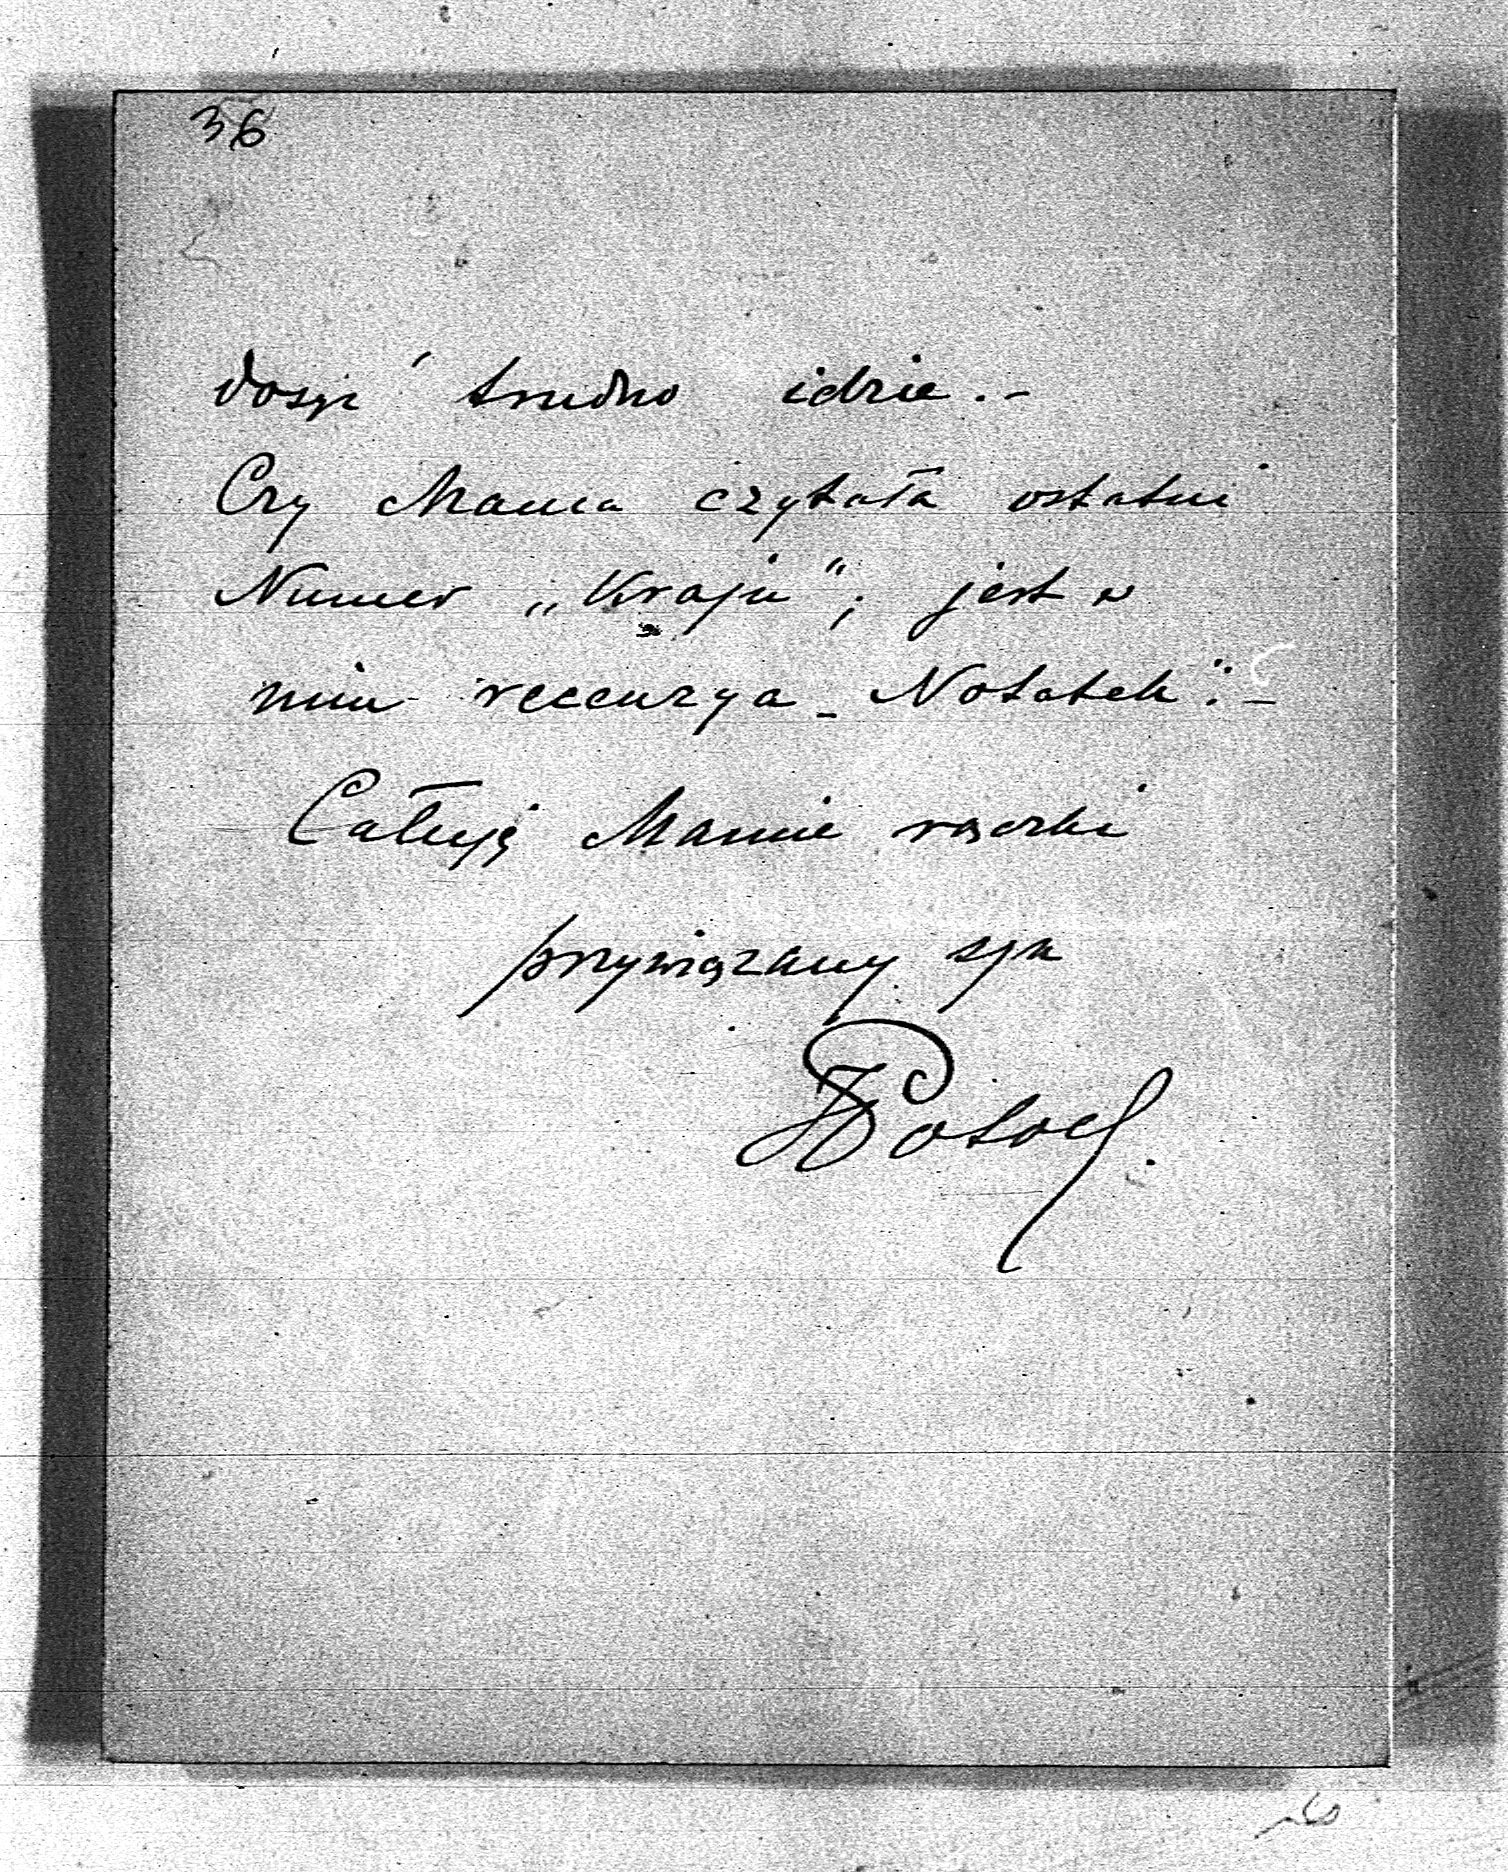 36
dosyć trudno idzie.-
Czy Mama czytała ostatni
Numer „Kraju"; jest w
nim recenzya - Notatek".-
Całuję Mamie rączki
przywiązany syn
Potoc